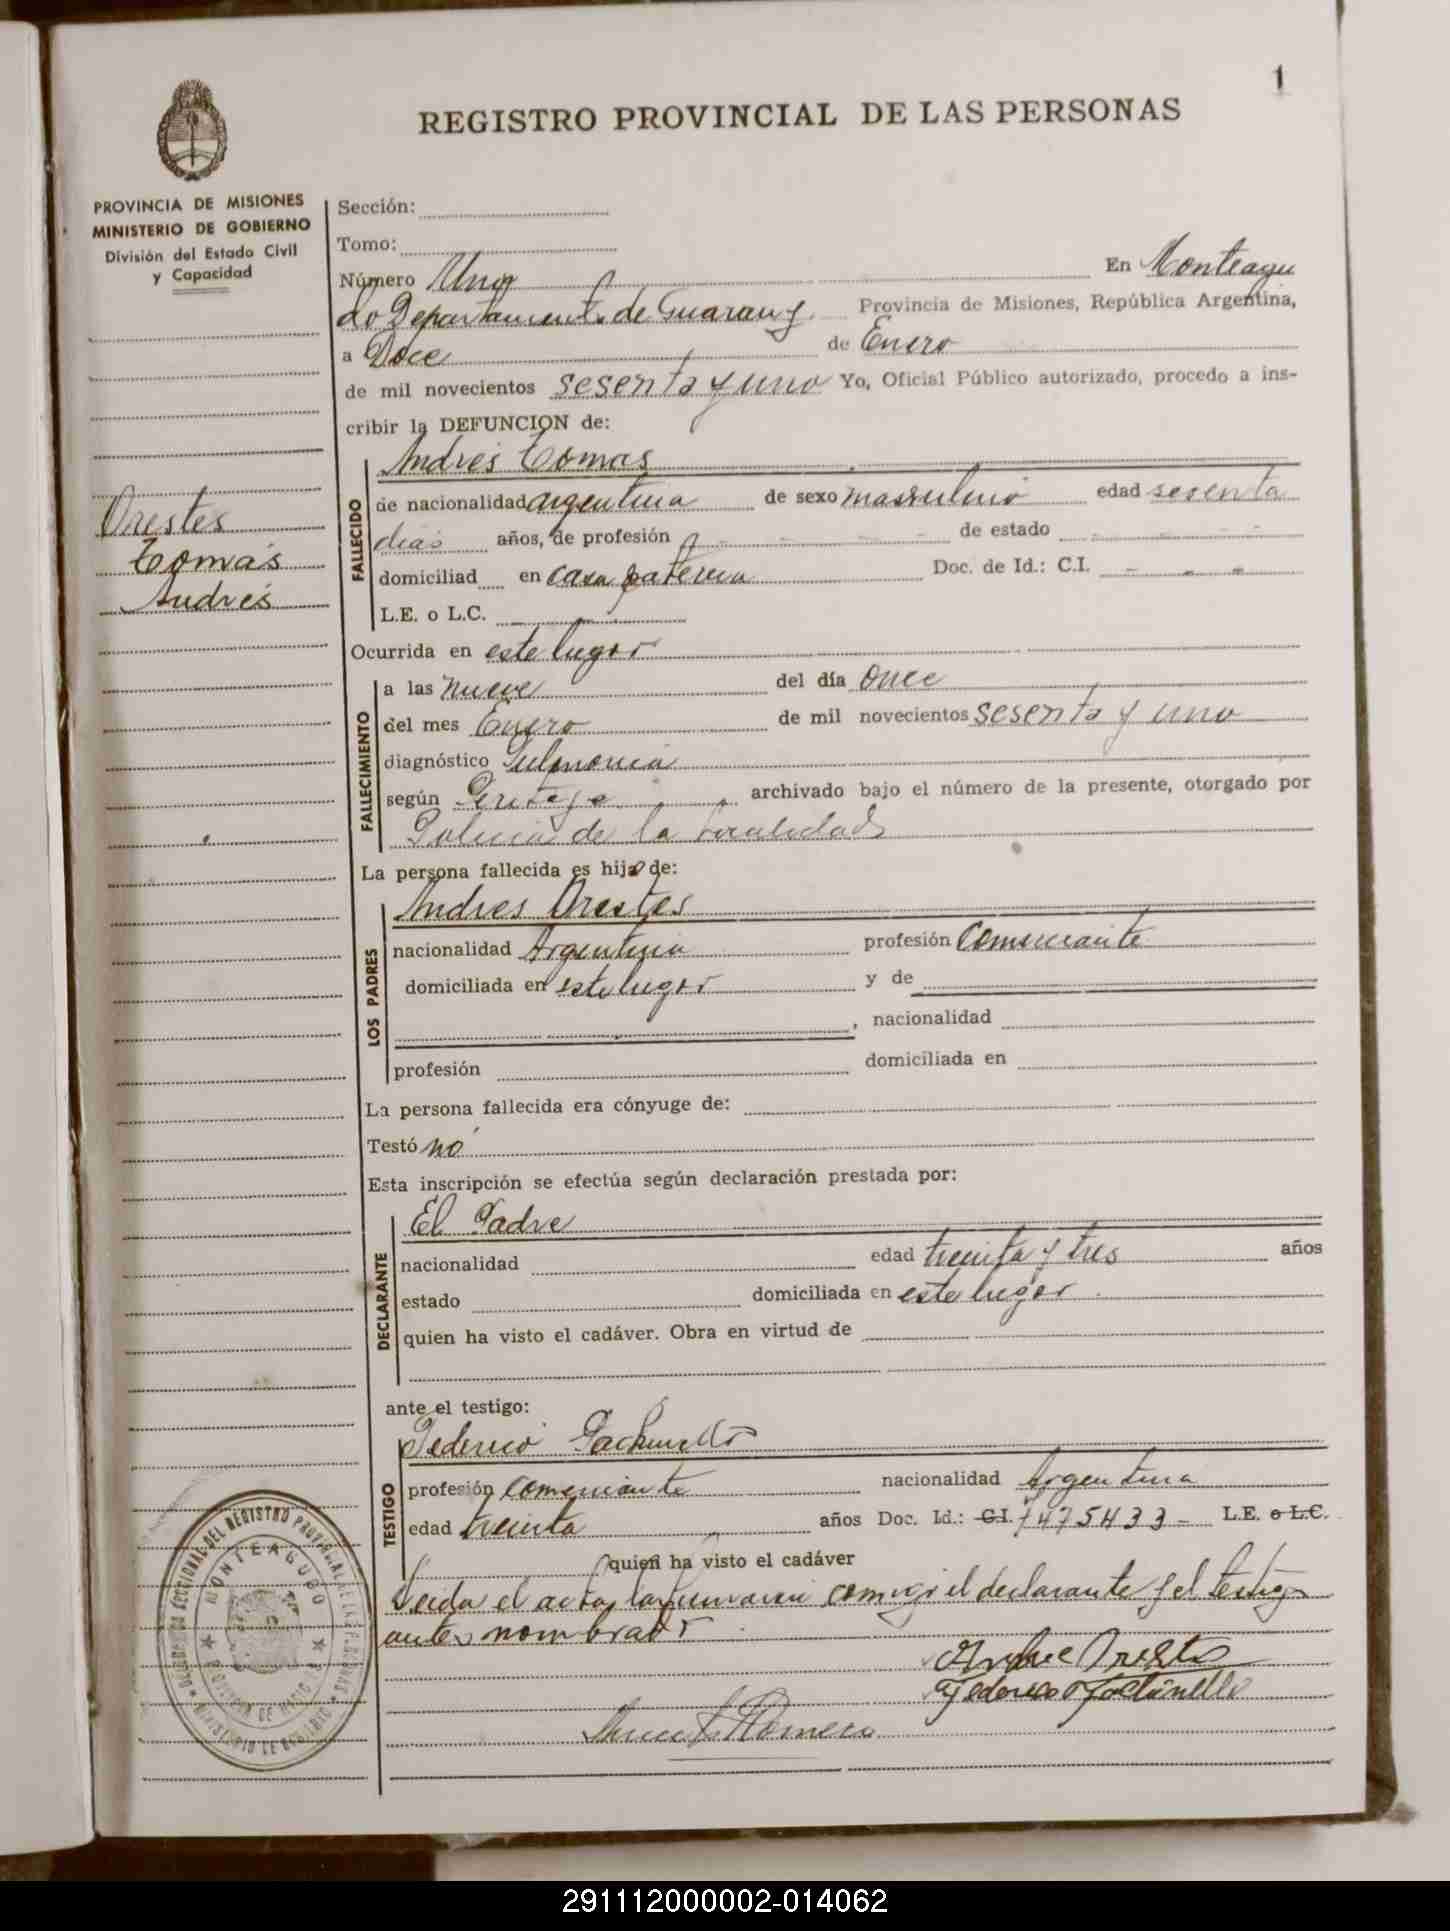 1
REGISTRO PROVINCIAL DE LAS PERSONAS
PROVINCIA DE MISIONES
MINISTERIO DE GOBIERNO
División del Estado Civil
y Capacidad
Orestes
Tomás
Andrés
Sección:
Tomo:
Número Uno En Monteagu
do Departamento de Guarany Provincia de Misiones, República Argentina,
a Doce de Enero
de mil novecientos sesenta y uno Yo, Oficial Público autorizado, procedo a ins-
cribir la DEFUNCION de:
Andrés Tomas
FALLECIDO
de nacionalidad argentina de sexo masculino edad sesenta
dias años, de profesión - - - de estado - - -
domiciliad en casa paterna Doc. de Id.: C.I. - - -
L.E. o L.C.
Ocurrida en este lugar
FALLECIMIENTO
a las nueve del día once
del mes Enero de mil novecientos sesenta y uno
diagnóstico Pulmonia
según archivado bajo el número de la presente, otorgado por
Policia de la localidad
La persona fallecida es hijo de:
LOS PADRES
Andres Orestes
nacionalidad Argentina profesión Comerciante
domiciliada en este lugar y de
, nacionalidad
profesión domiciliada en
La persona fallecida era cónyuge de:
Testó no
Esta inscripción se efectúa según declaración prestada por:
DECLARANTE
El Padre
nacionalidad edad treinta y tres años
estado domiciliada en este lugar
quien ha visto el cadáver. Obra en virtud de
ante el testigo:
TESTIGO
Federico
profesión comerciante nacionalidad Argentina
edad treinta años Doc. Id.: C.I. 7475433- L.E. o L.C.
quien ha visto el cadáver
Leida el acta, la firman conmigo el declarante y el testigo
antes nombrado
Andres Orestes
Federico
Romero
MONTEAGUDO
291112000002-014062